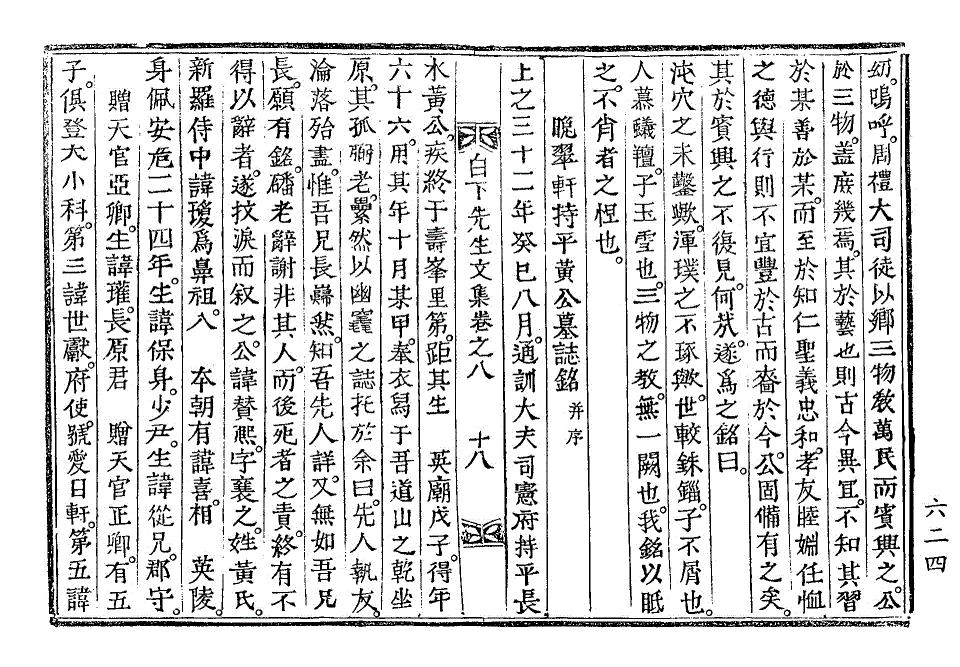 幼。嗚呼。周禮大司徒以鄕三物敎萬民而賓興之。公
於三物。盖庶幾焉。其於藝也則古今異冝。不知其習
於某善於某。而至於知仁聖義忠和。孝友睦婣任恤
之德與行則不宜豐於古而嗇於今。公固備有之矣。
其於賓興之不復見。何㢤。遂爲之銘曰。
沌穴之未鑿歟。渾璞之不琢歟。世較銖錙。子不屑也。
人慕蟻羶。子玉雪也。三物之敎。無一闕也。我銘以眡
之。不肖者之怛也。
晩翠軒持平黃公墓誌銘 幷序
上之三十二年癸巳八月。通訓大夫司憲府持平長
白下先生文集卷之八 十八
水黃公。疾終于壽峯里第。距其生 英廟戊子。得年
六十六。用其年十月某甲。奉衣舃于吾道山之乾坐
原。其孤磻老。纍然以幽竁之誌托於余曰。先人執友。
淪落殆盡。惟吾兄長巋然。知吾先人詳。又無如吾兄
長。願有銘。磻老辭謝非其人。而後死者之責。終有不
得以辭者。遂抆淚而叙之。公諱贊熙。字襄之。姓黃氏。
新羅侍中諱瓊爲鼻祖。入 本朝有諱喜。相 英陵。
身佩安危二十四年。生諱保身。少尹。生諱從兄。郡守。
贈天官亞卿。生諱瓘。長原君 贈天官正卿。有五
子。俱登大小科。第三諱世獻。府使。號愛日軒。第五諱
六二四